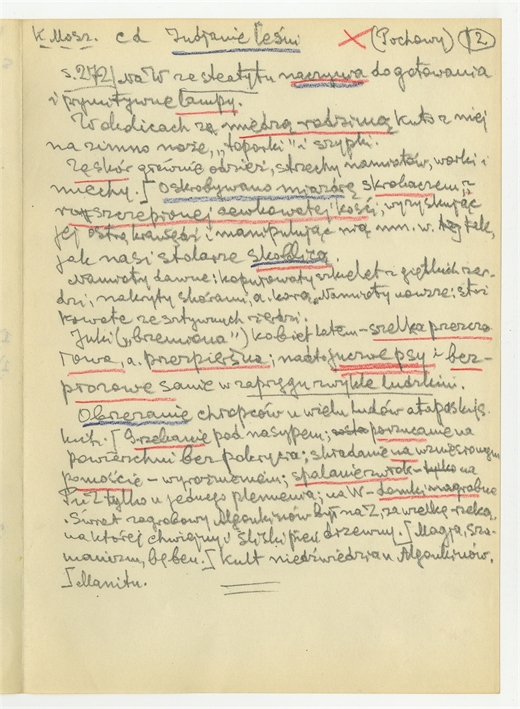 K. Mosz. c d Indjanie leśni (Pochowy) 12
s. 272/ Na W ze steatytu naczynia do gotowania
i prymitywne lampy.
W okolicach za miedzią rodzimą kuto z niej
na zimno noże, „toporki" i szydła.
Ze skór głównie odzież, strzechy namiotów, worki i
miechy. [ Oskrobywano miazdrę skrobaczem z
rozszczepionej cewkowatej kości, wyzyskując
jej ostrą krawędź i manipulując nią mn. w. tak,
jak nasi stolarze skoblicą.
Namioty dawne: kopulowaty szkielet z giętkich żer-
dzi, nakryty skórami, a. korą. Namioty nowsze: stoż
kowate ze sztywnych żerdzi.
Juki („brzemiona") kobiet latem - szelka przez czo
łowa, a. przez piersie; nadto juczne psy i bez-
płozowe sanie w zaprzęgu zwykle ludzkim.
Obrzezanie chłopców u wielu ludów atapaskij.
kuch. [ Grzebanie pod nasypem; porzucanie na
powierzchni bez pokrycia; składanie na wzniesionym
pomoście - wyrożnieniem; spalanie zwłok - tylko na
Pd Z tylko u jednego plemienia; na W - domki nagrobne
Świat zagrobowy Algonkinów był na Z, za wielką rzeką,
na której chwiejny i śliski pień drzewny. [ Magja, sza-
manizm, bęben. [ Kult niedźwiedzia u Algonkinów.
[ Manitu.